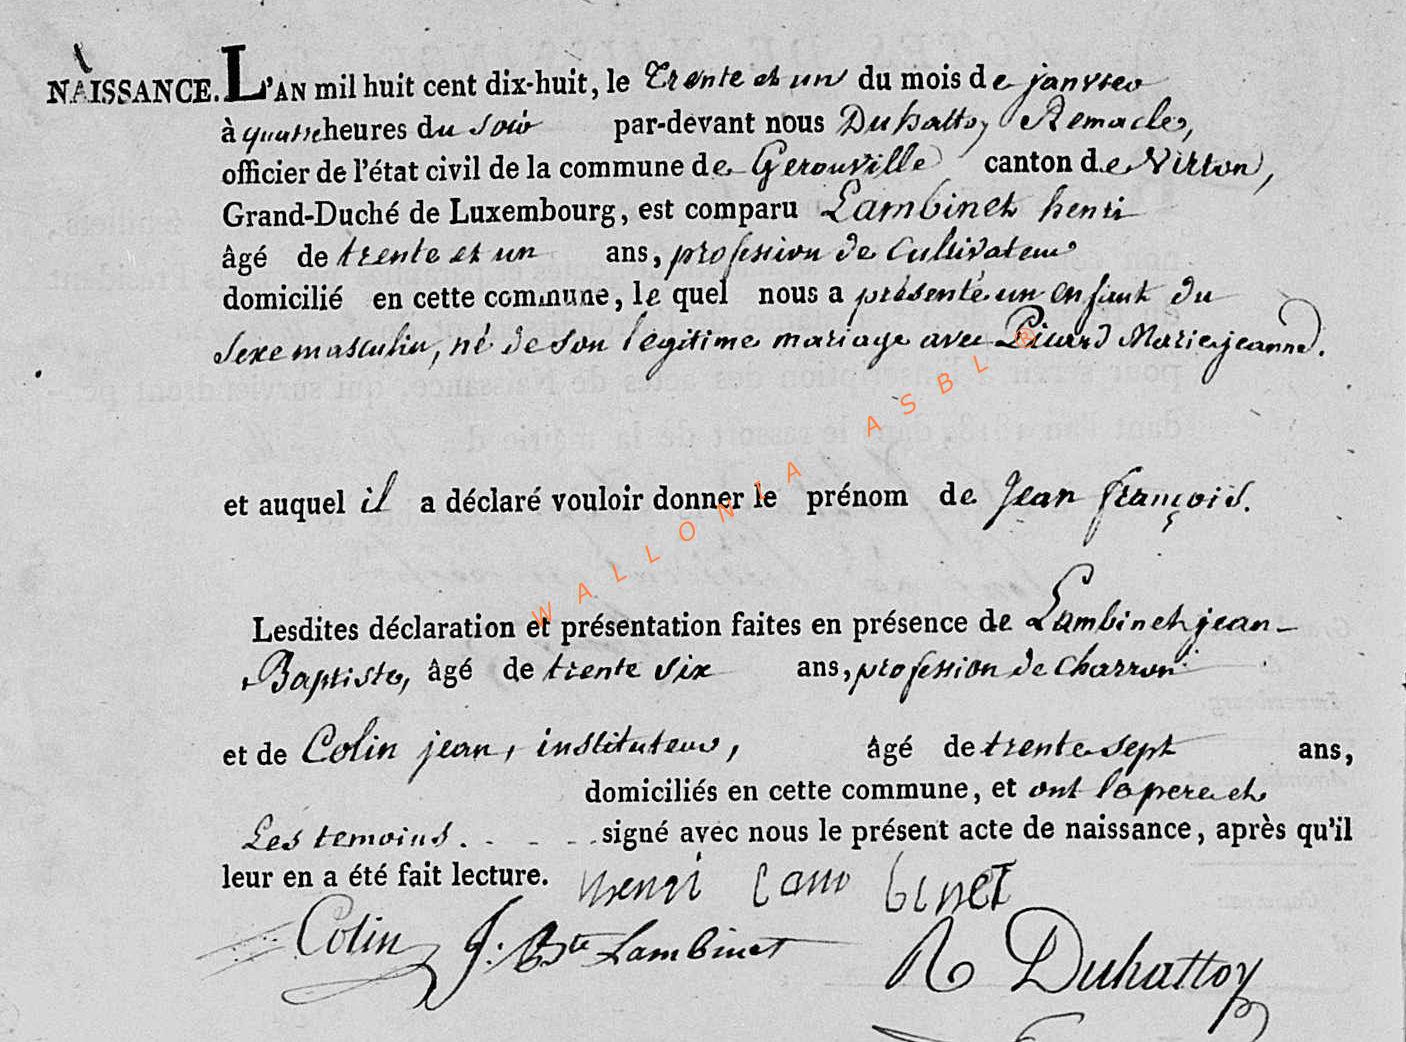 NAISSANCE. L'AN mil huit cent dix-huit, le trente et un du mois de janvier
à quatre heures du soir par-devant nous Duhattoy Remacle,
officier de l'état civil de la commune de Gerouville canton de Virton,
Grand-Duché de Luxembourg, est comparu Lambinet henri
âgé de trente et un ans, profession de Cultivateur
domicilié en cette commune, le quel nous a présenté un enfant du
Sexe masculin, né de son legitime mariage avec Picard Marie jeanne.
et auquel il a déclaré vouloir donner le prénom de Jean françois.
WALLONIA ASBL ®
Lesdites déclaration et présentation faites en présence de Lambinet jean-
Baptiste, âgé de trente six ans, profession de Charron
et de Colin jean, instituteur, âgé de trente sept ans,
domiciliés en cette commune, et ont le pere et
Les temoins. - - - signé avec nous le présent acte de naissance, après qu'il
leur en a été fait lecture. henri Lambinet
Colin J. Bte Lambinet R Duhattoy